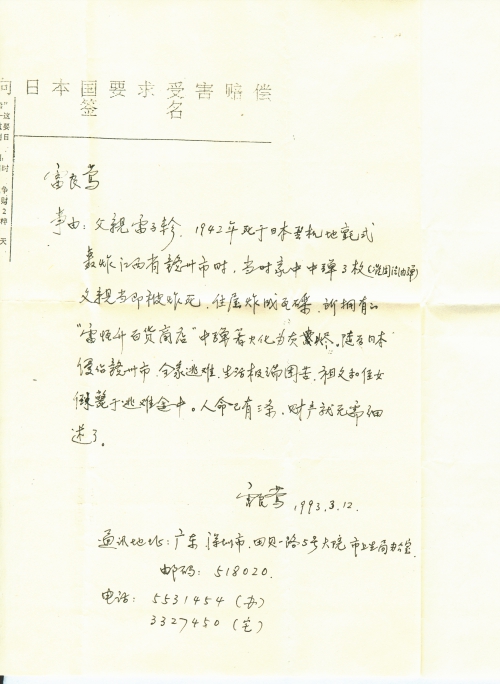 向日本国要求受害赔偿
签 名
雷良莺
事由: 父亲雷子轸, 1942年死于日本飞机地毯式
轰炸江西省赣州市时, 当时家中中弹3枚
父亲当即被炸死, 住屋炸成瓦砾, 所拥有的
“雷恒升百货商店”中弹着火化为灰烬。随后日本
侵占赣州市, 全家逃难, 生活极端困苦, 祖父和侄女
毙于逃难途中。人命已有三条, 财产就无需细
述了。
雷良莺 1993.3.12.
通讯地址: 广东 深圳市 田贝一路5号大院 市卫生局办公室
邮码: 518020.
电话: 5531454 (办)
3327450 (宅)